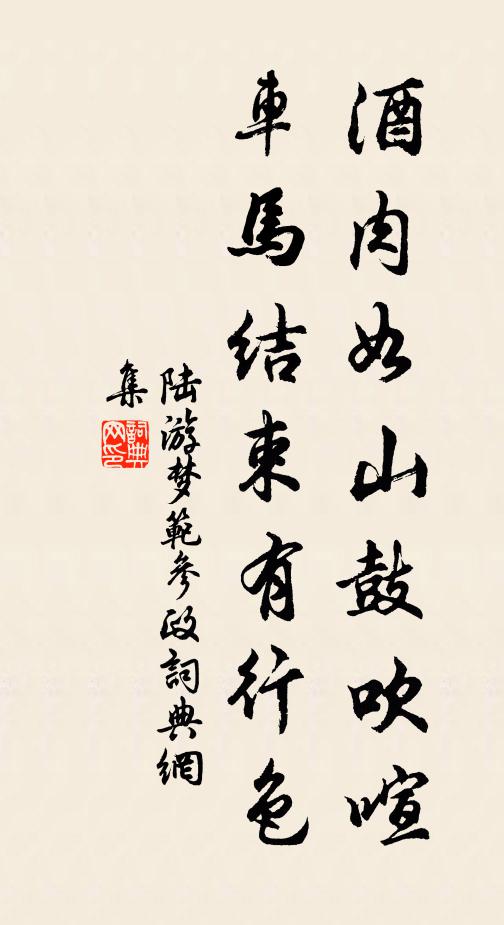 酒肉如山鼓吹喧
車馬結束有行色
陆游梦範參政詞典網
集
詞典网印